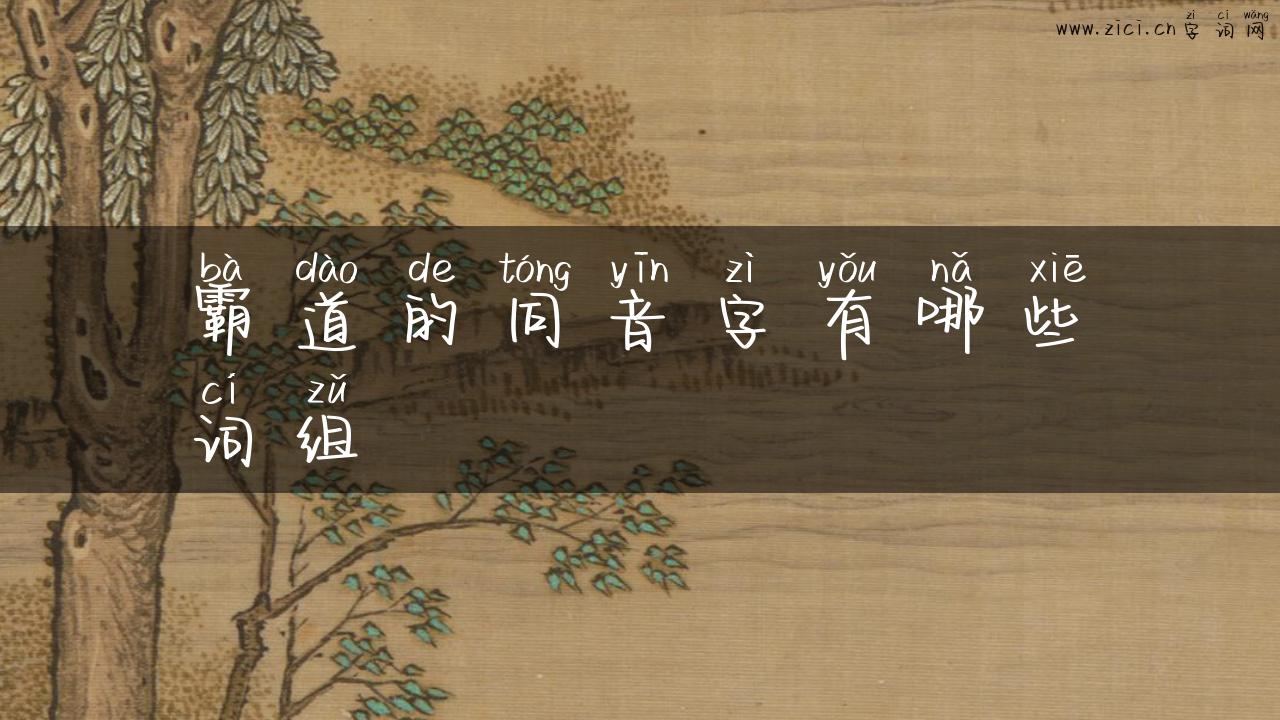 zì cí wǎng
www.zici.cn 字词网
bà dào de tóng yīn zì yǒu nǎ xiē
霸道的同音字有哪些
cí zǔ
词组